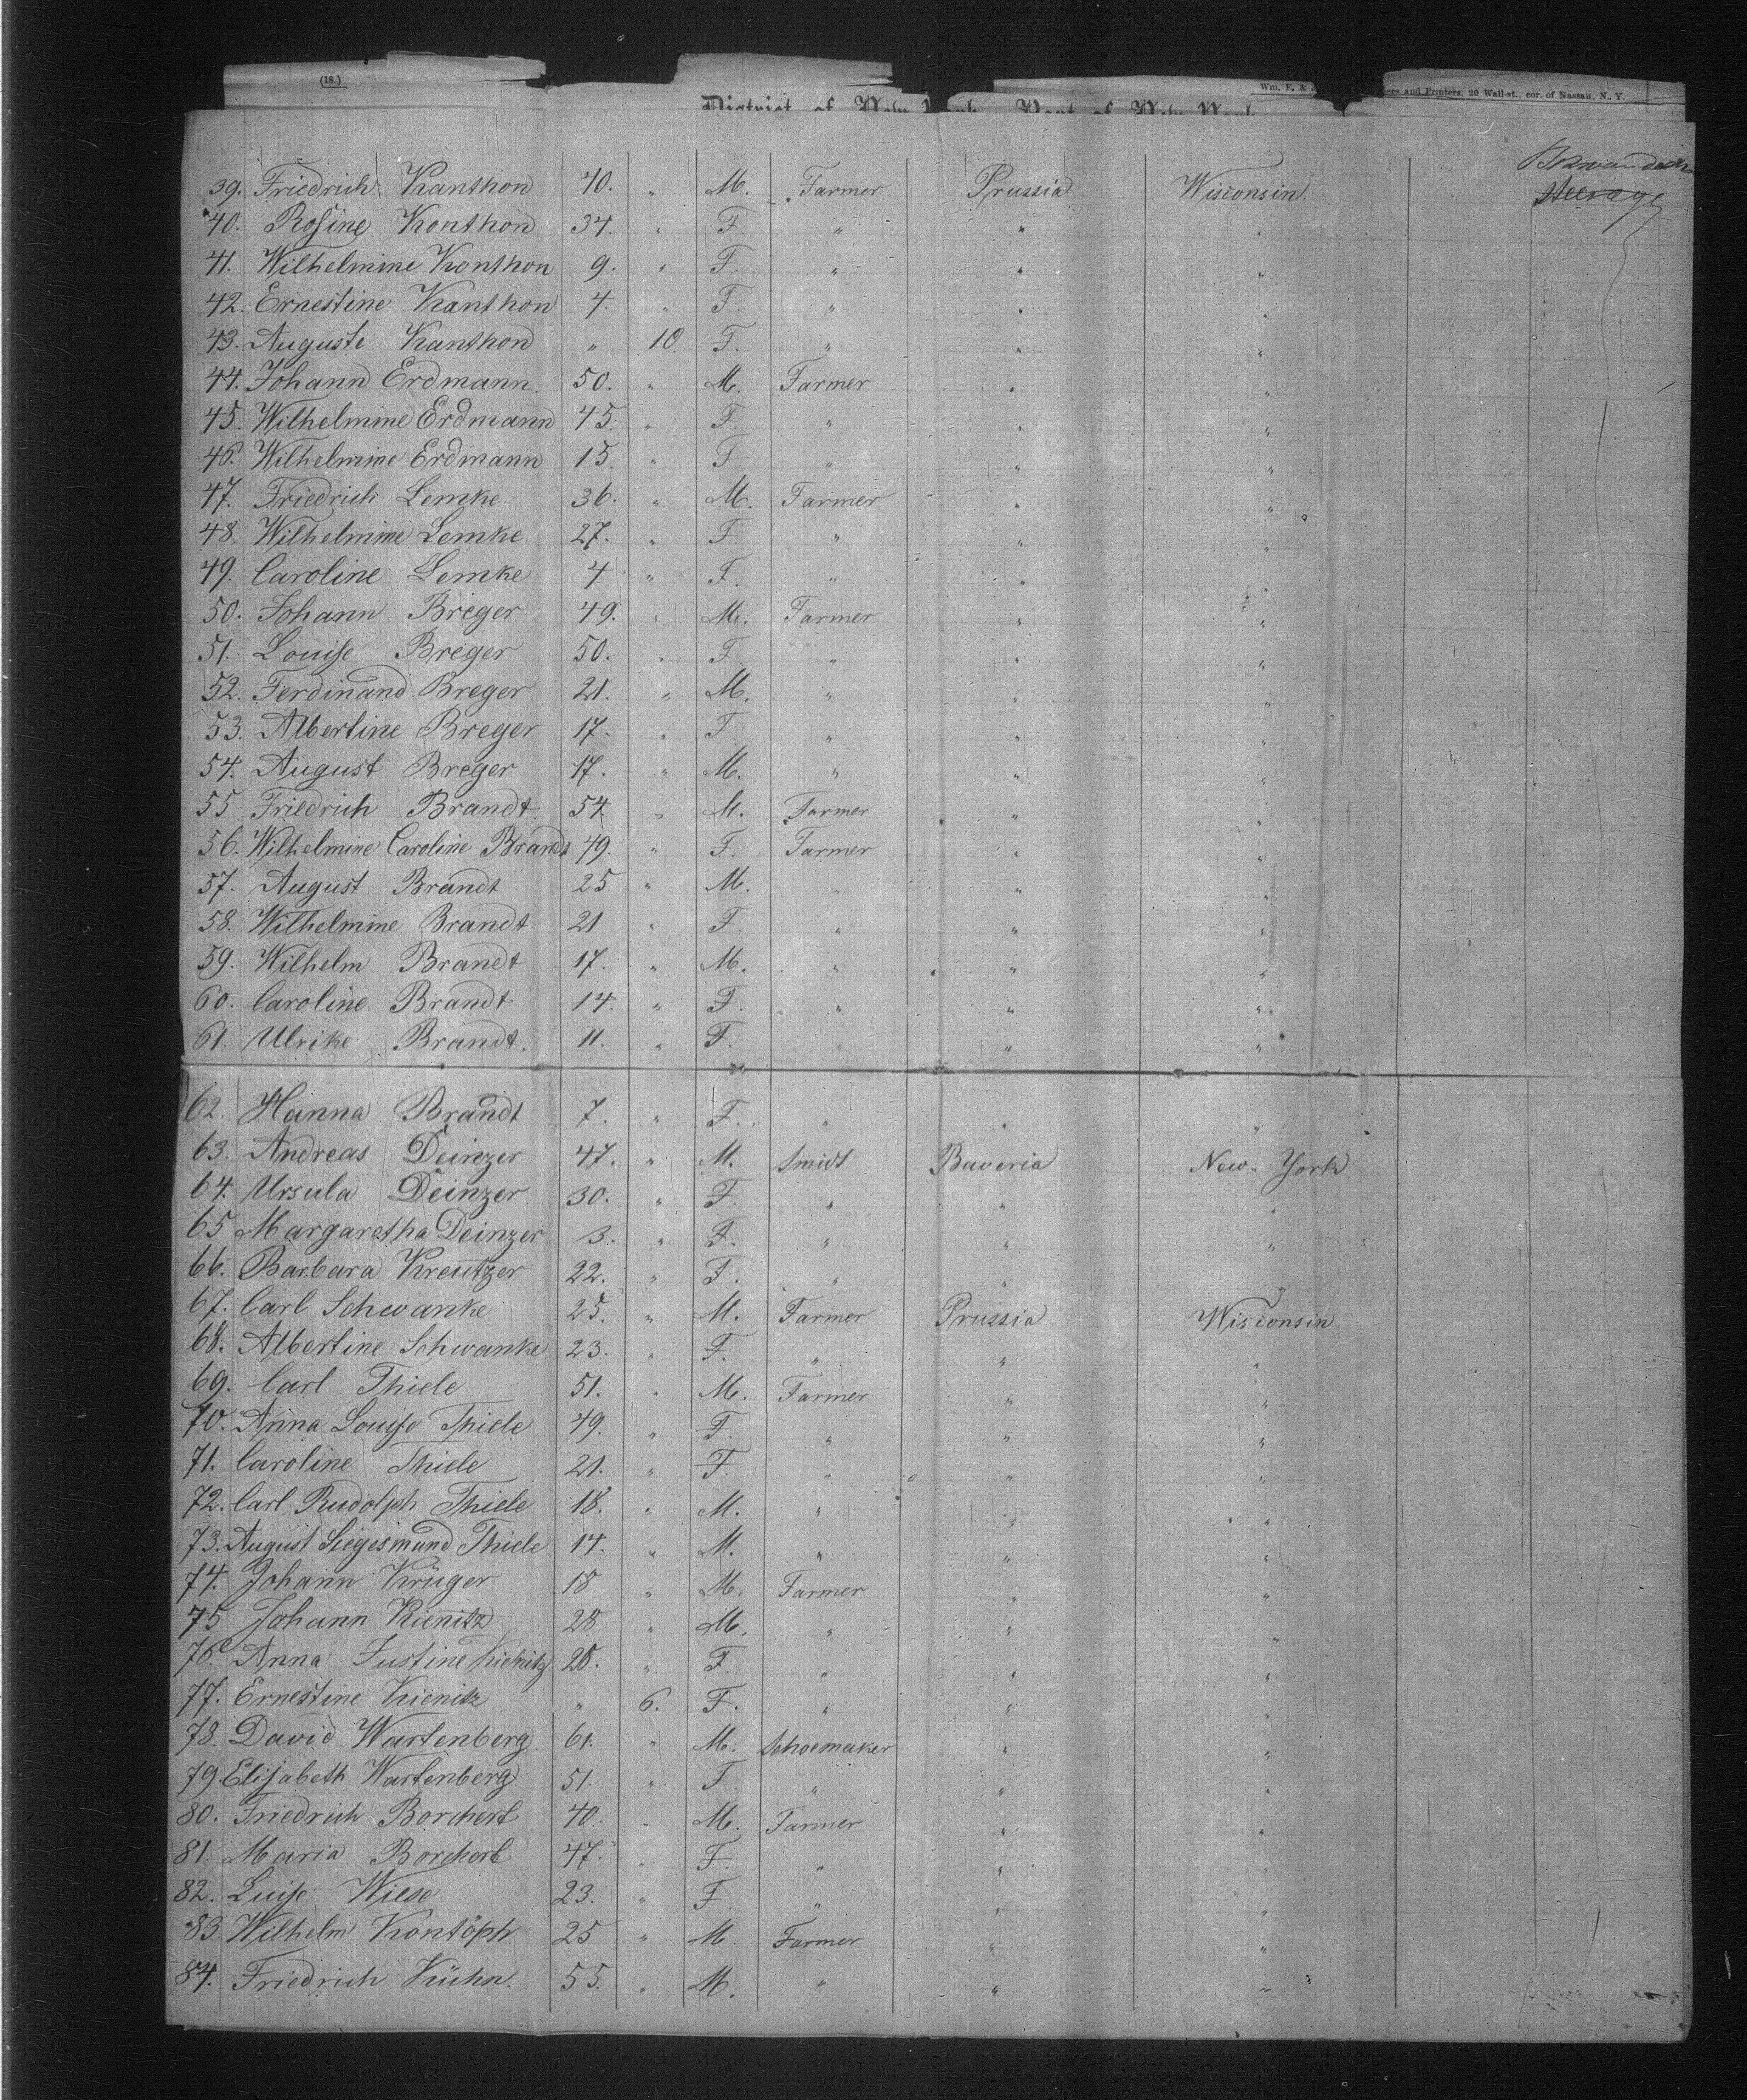 (18.)
Wm. E. &
ers and Printers, 20 Wall-st., cor. of Nassau, N. Y.
District of New York Port of New York
39. Friedrich Kanthon 40. " M. Farmer Prussia Wisconsin.
Steerage
40. Rosine Konthon 34. " F. " " "
41. Wilhelmine Konthon 9. " F. " " "
42. Ernestine Kanthon 4. " F. " " "
43. Auguste Kanthon " 10 F. " " "
44. Johann Erdmann. 50. " M. Farmer " "
45. Wilhelmine Erdmann 45. " F. " " "
46. Wilhelmine Erdmann 15. " F " " "
47. Friedrich Lemke 36. " M. Farmer " "
48. Wilhelmine Lemke 27. " F. " " "
49. Caroline Lemke 4 " F. " " "
50. Johann Breger 49. " M. Farmer " "
51. Louise Breger 50. " F " " "
52. Ferdinand Breger 21. " M. " " "
53. Albertine Breger 17. " F " " "
54. August Breger 17. " M. " " "
55 Friedrich Brandt 54. " M. Farmer " "
56. Wilhelmine Caroline Brandt 49. " F. Farmer " "
57. August Brandt 25 " M. " " "
58. Wilhelmine Brandt 21 " F. " " "
59. Wilhelm Brandt 17. " M. " " "
60. Caroline Brandt 14. " F. " " "
61. Ulrike Brandt. 11. " F. " " "
62. Hanna Brandt 7. " F. " " "
63. Andreas Deinzer 47. " M. Smidt Baveria New-York
64. Ursula Deinzer 30. " F. " " "
65 Margaretha Deinzer 3. " F. " " "
66. Barbara Kreutzer 22. " F. " " "
67. Carl Schwanke 25. " M. Farmer Prussia Wisconsin
68. Albertine Schwanke 23. " F. " " "
69. Carl Thiele 51. " M. Farmer " "
70. Anna Louise Thiele 49. " F. " " "
71. Caroline Thiele 21. " F. " " "
72. Carl Rudolph Thiele 18. " M. " " "
73. August Siegesmund Thiele 14. " M. " " "
74. Johann Krüger 18 " M. Farmer " "
75 Johann Kienitz 28 " M. " " "
76. Anna Justine Kienitz 28. " F. " " "
77. Ernestine Kienitz " 6. F. " " "
78. David Wartenberg 61. " M. Schoemaker " "
79. Elisabeth Wartenberg 51. " F " " "
80. Friedrich Borchert 40. " M. Farmer " "
81. Maria Borchert 47. " F. " " "
82. Luise Wiese 23. " F " " "
83. Wilhelm Kontöph 25 " M Farmer " "
84. Friedrich Kühn. 55. " M. " " "